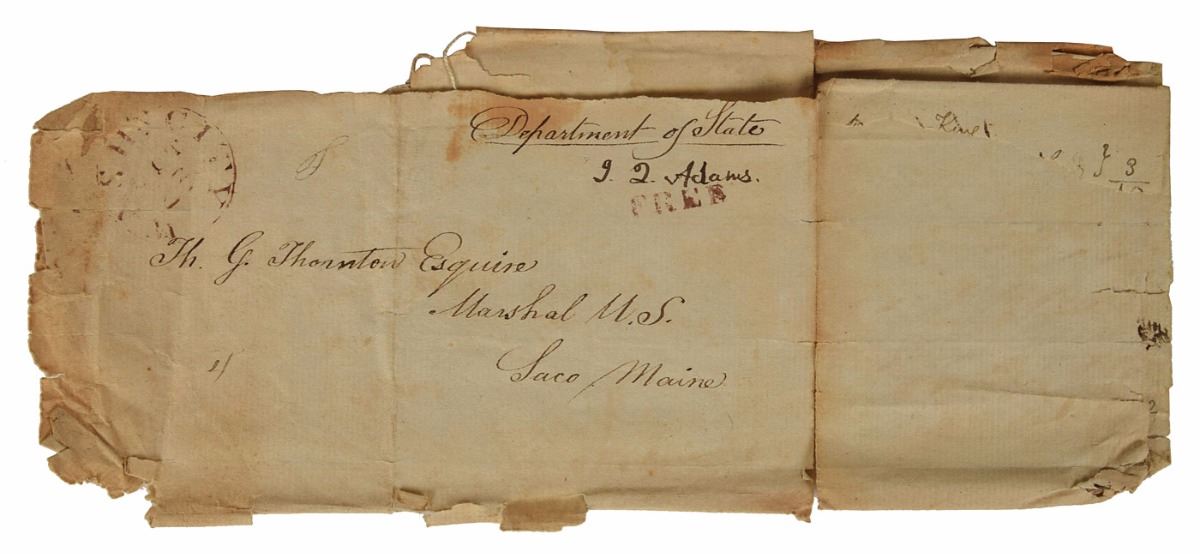 Department of State
J. Q. Adams.
FREE
Th. G. Thornton Esquire
Marshal U.S.
Saco Maine